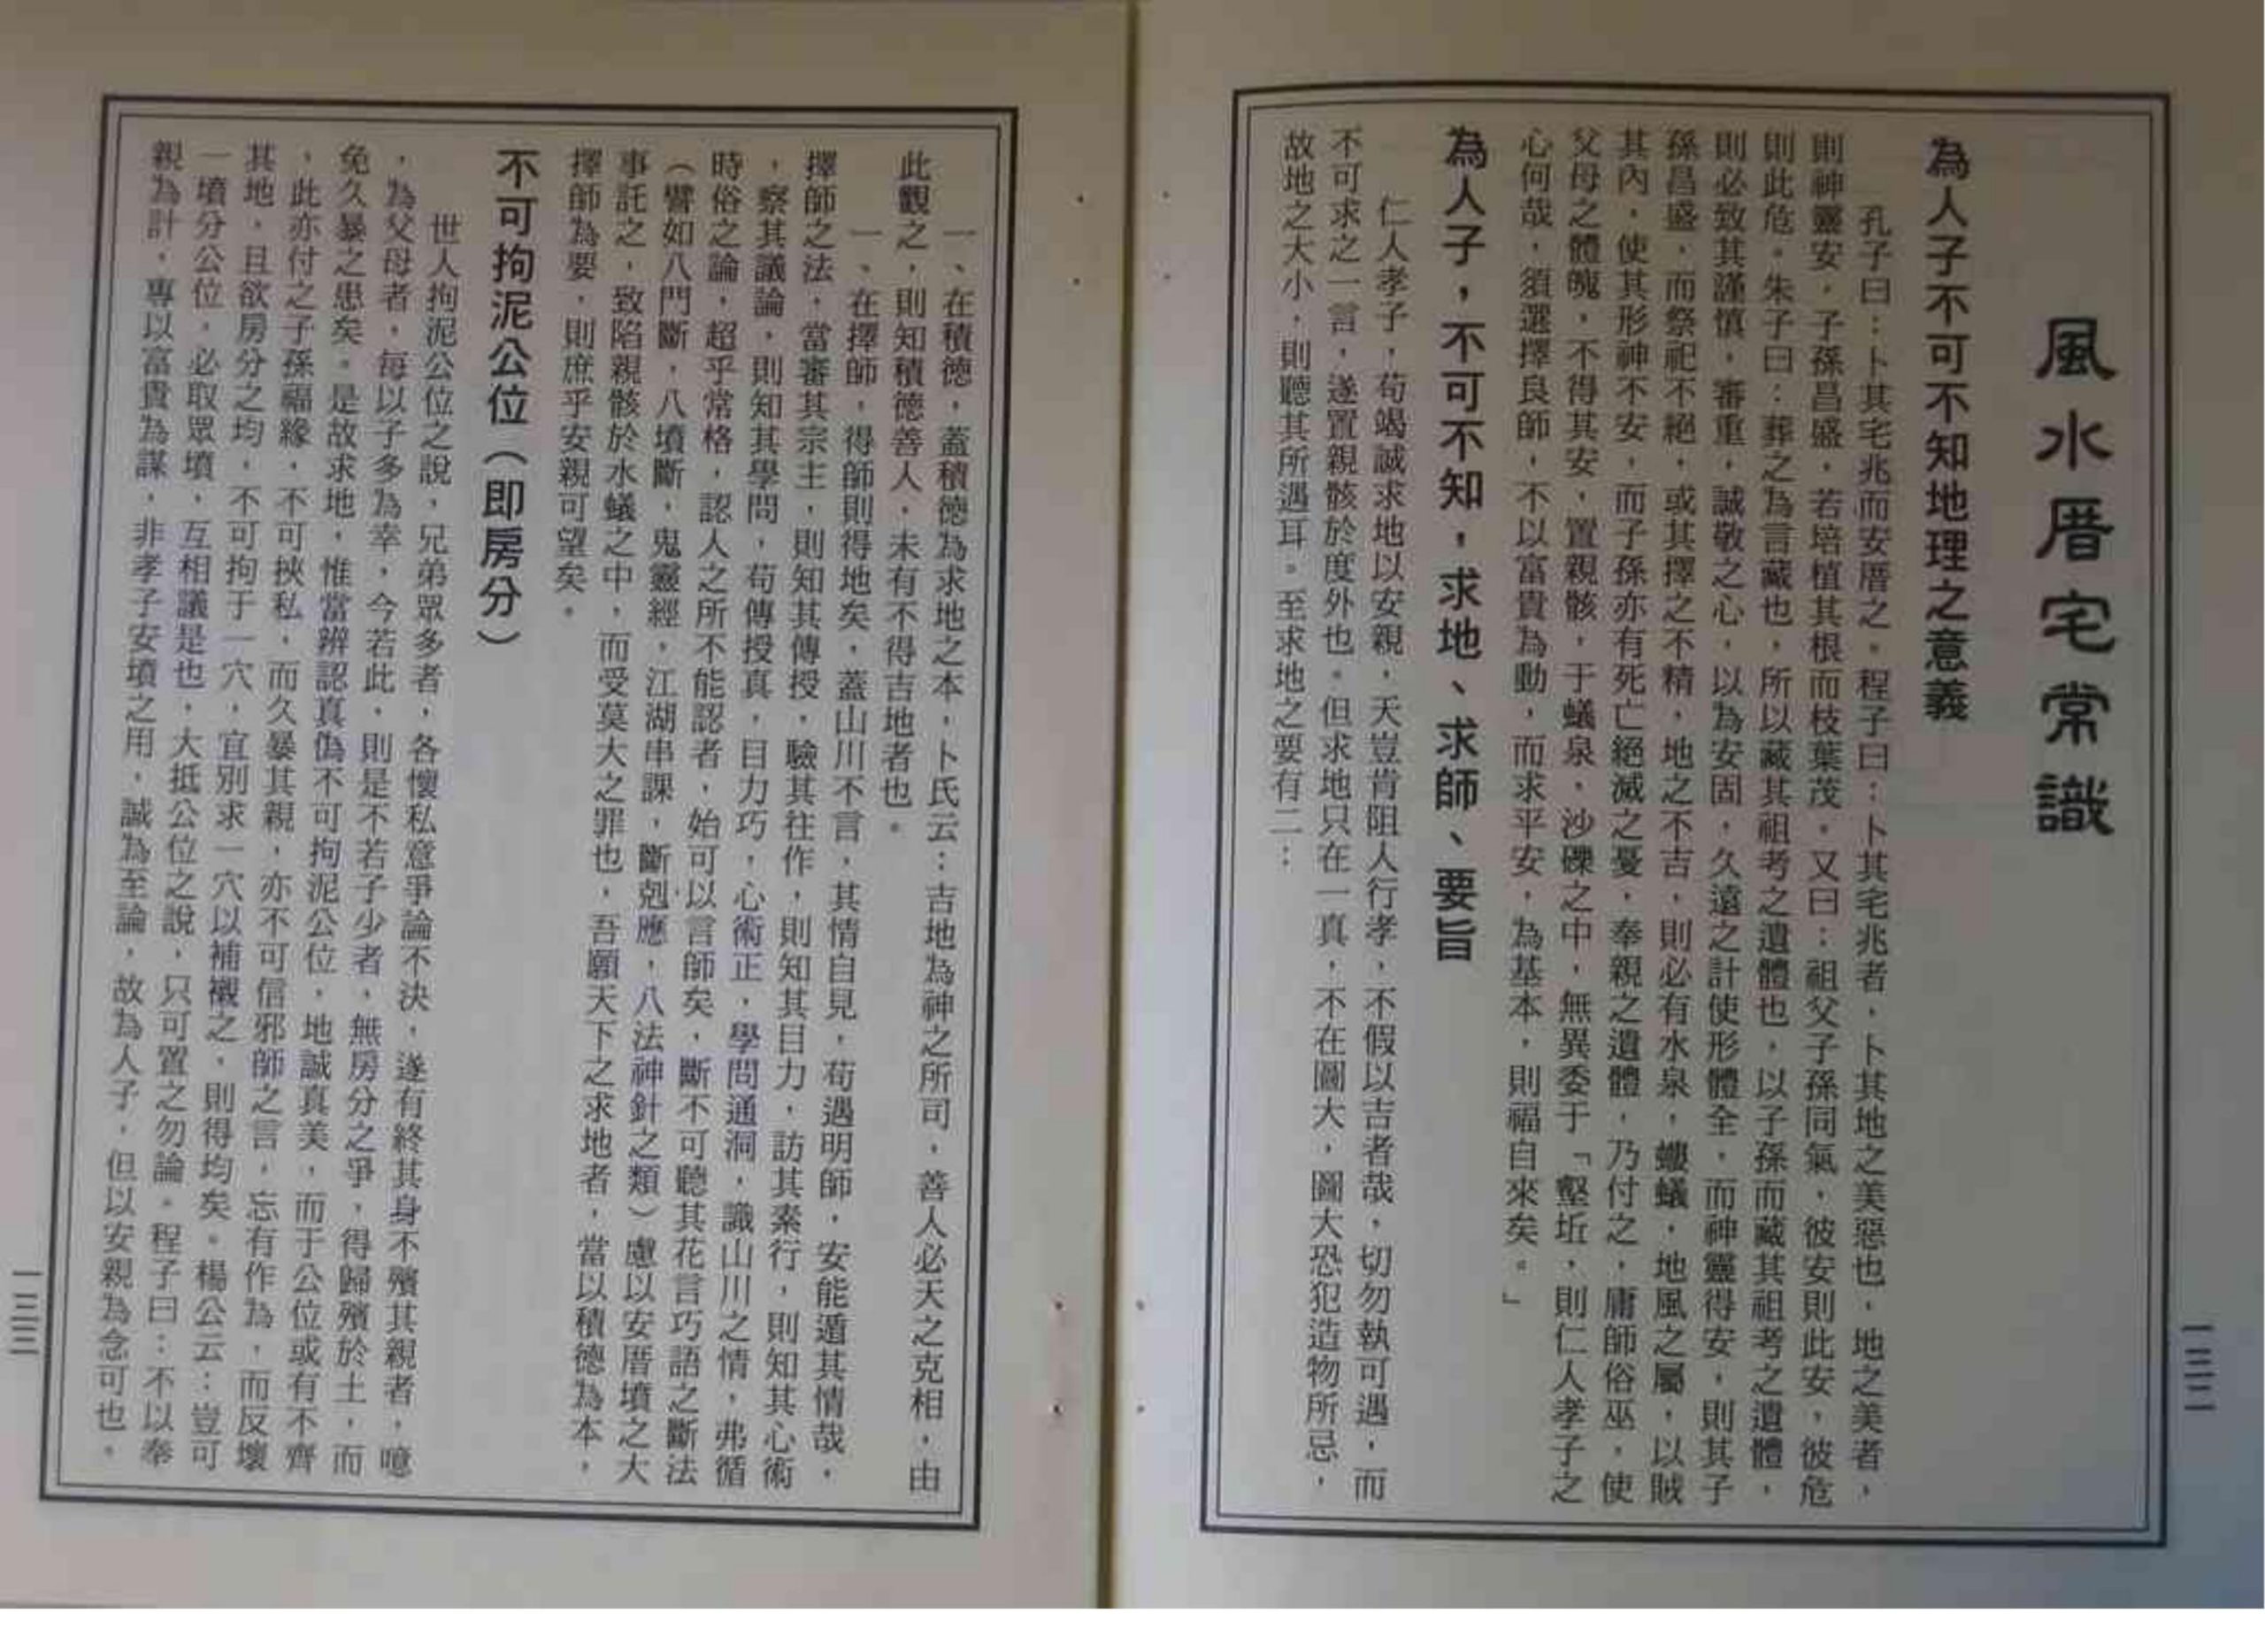 風水厝宅常識
為人子不可不知地理之意義
孔子曰：卜其宅兆而安厝之。程子曰：卜其宅兆者，卜其地之美惡也，地之美者，
則神靈安，子孫昌盛，若培植其根而枝葉茂。又曰：祖父子孫同氣，彼安則此安，彼危
則此危。朱子曰：葬之為言藏也，所以藏其祖考之遺體也，以子孫而藏其祖考之遺體，
則必致其謹慎，審重，誠敬之心，以為安固，久遠之計使形體全，而神靈得安，則其子
孫昌盛，而祭祀不絕，或其擇之不精，地之不吉，則必有水泉，螻蟻，地風之屬，以賊
其內，使其形神不安，而子孫亦有死亡絕滅之憂，奉親之遺體，乃付之，庸師俗巫，使
父母之體魄，不得其安，置親骸，于蟻泉，沙礫之中，無異委于「壑坵，則仁人孝子之
心何哉，須選擇良師，不以富貴為動，而求平安，為基本，則福自來矣。」
為人子，不可不知，求地、求師、要旨
仁人孝子，苟竭誠求地以安親，天豈肯阻人行孝，不假以吉者哉，切勿執可遇，而
不可求之一言，遂置親骸於度外也。但求地只在一真，不在圖大，圖大恐犯造物所忌，
故地之大小，則聽其所遇耳。至求地之要有二：
一三二
一、在積德，蓋積德為求地之本，卜氏云：吉地為神之所司，善人必天之克相，由
此觀之，則知積德善人，未有不得吉地者也。
一、在擇師，得師則得地矣，蓋山川不言，其情自見，苟遇明師，安能遁其情哉，
擇師之法，當審其宗主，則知其傳授，驗其往作，則知其目力，訪其素行，則知其心術
，察其議論，則知其學問，苟傳授真，目力巧，心術正，學問通洞，識山川之情，弗循
時俗之論，超乎常格，認人之所不能認者，始可以言師矣，斷不可聽其花言巧語之斷法
（譬如八門斷，八墳斷，鬼靈經，江湖串課，斷剋應，八法神針之類）慮以安厝墳之大
事託之，致陷親骸於水蟻之中，而受莫大之罪也，吾願天下之求地者，當以積德為本，
擇師為要，則庶乎安親可望矣。
不可拘泥公位（即房分）
世人拘泥公位之說，兄弟眾多者，各懷私意爭論不決，遂有終其身不殯其親者，噫
，為父母者，每以子多為幸，今若此，則是不若子少者，無房分之爭，得歸殯於土，而
免久暴之患矣。是故求地，惟當辨認真偽不可拘泥公位，地誠真美，而于公位或有不齊
，此亦付之子孫福緣，不可挾私，而久暴其親，亦不可信邪師之言，忘有作為，而反壞
其地，且欲房分之均，不可拘于一穴，宜別求一穴以補襯之，則得均矣。楊公云：豈可
一墳分公位，必取眾墳，互相議是也，大抵公位之說，只可置之勿論。程子曰：不以奉
親為計，專以富貴為謀，非孝子安墳之用，誠為至論，故為人子，但以安親為念可也。
一三三